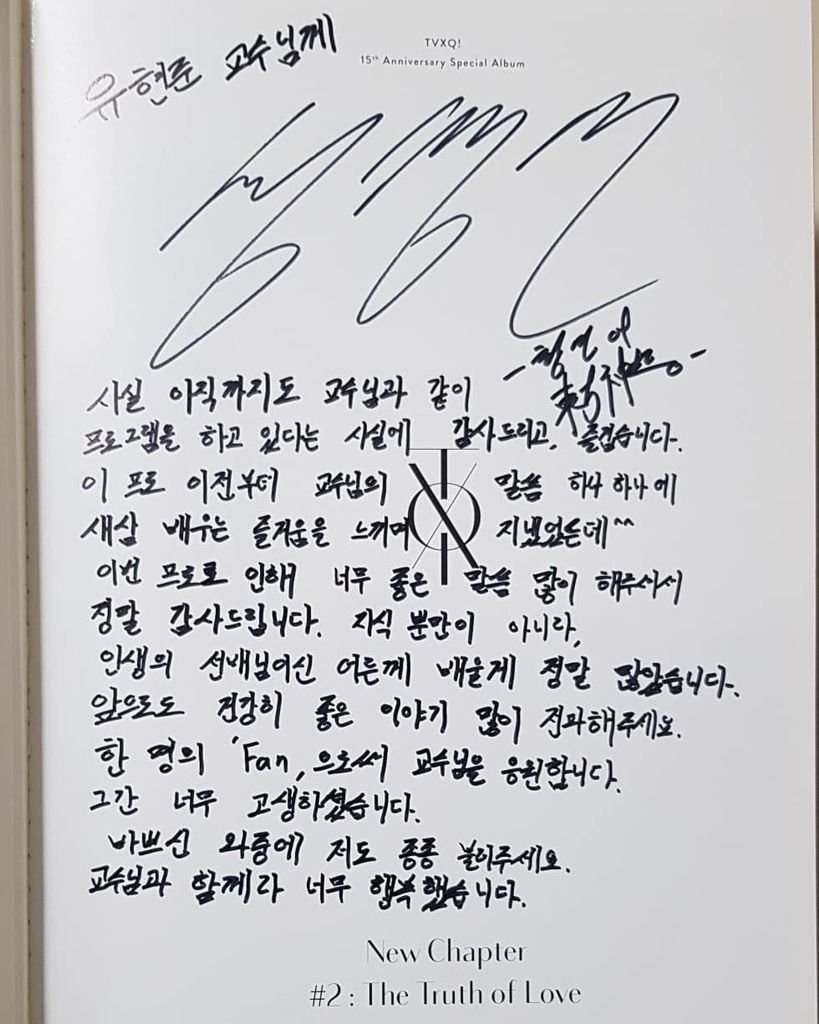 유현준 교수님께
TVXQ!
15th Anniversary Special Album
사실 아직까지도 교수님과 같이
프로그램을 하고 있다는 사실에 감사드리고, 즐겁습니다.
이 프로 이전부터 교수님의 말씀 하나 하나에
새삼 배우는 즐거움을 느끼며 지냈었는데^^
이번 프로로 인해 너무 좋은 말씀 많이 해주셔서
정말 감사드립니다. 지식 뿐만이 아니라,
인생의 선배님이신 어른께 배울게 정말 많았습니다.
앞으로도 건강히 좋은 이야기 많이 전파해주세요.
한 명의 'Fan, 으로써 교수님을 응원합니다.
그간 너무 고생하셨습니다.
바쁘신 와중에 저도 종종 불러주세요.
교수님과 함께라 너무 행복했습니다.
New Chapter
#2 : The Truth of Love